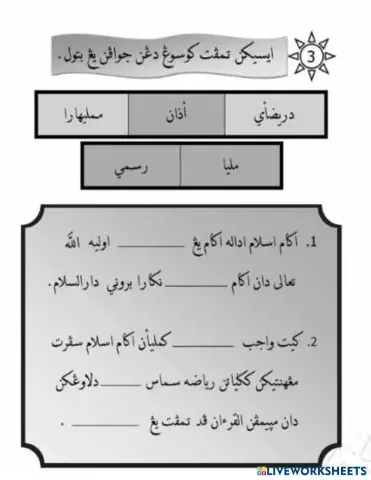 ايسيکن تمڤت کوسوڠ دڠن جواڤن يڠ بتول.
3
دريضأي
أذان
ممليهارا
مليا
رسمي
1. اڬام اسلام اداله اڬام يڠ __________ اوليه الله
تعالى دان اڬام __________ نڬارا بروني دارالسلام.
2. کيت واجب __________ کمليأن اڬام اسلام سڤرت
مڠهنتيکن کڬياتن رياضه سماس ______ دلاوڠکن
دان مپيمڤن القرءان ڤد تمڤت يڠ __________ .
LIVEWORKSHEETS